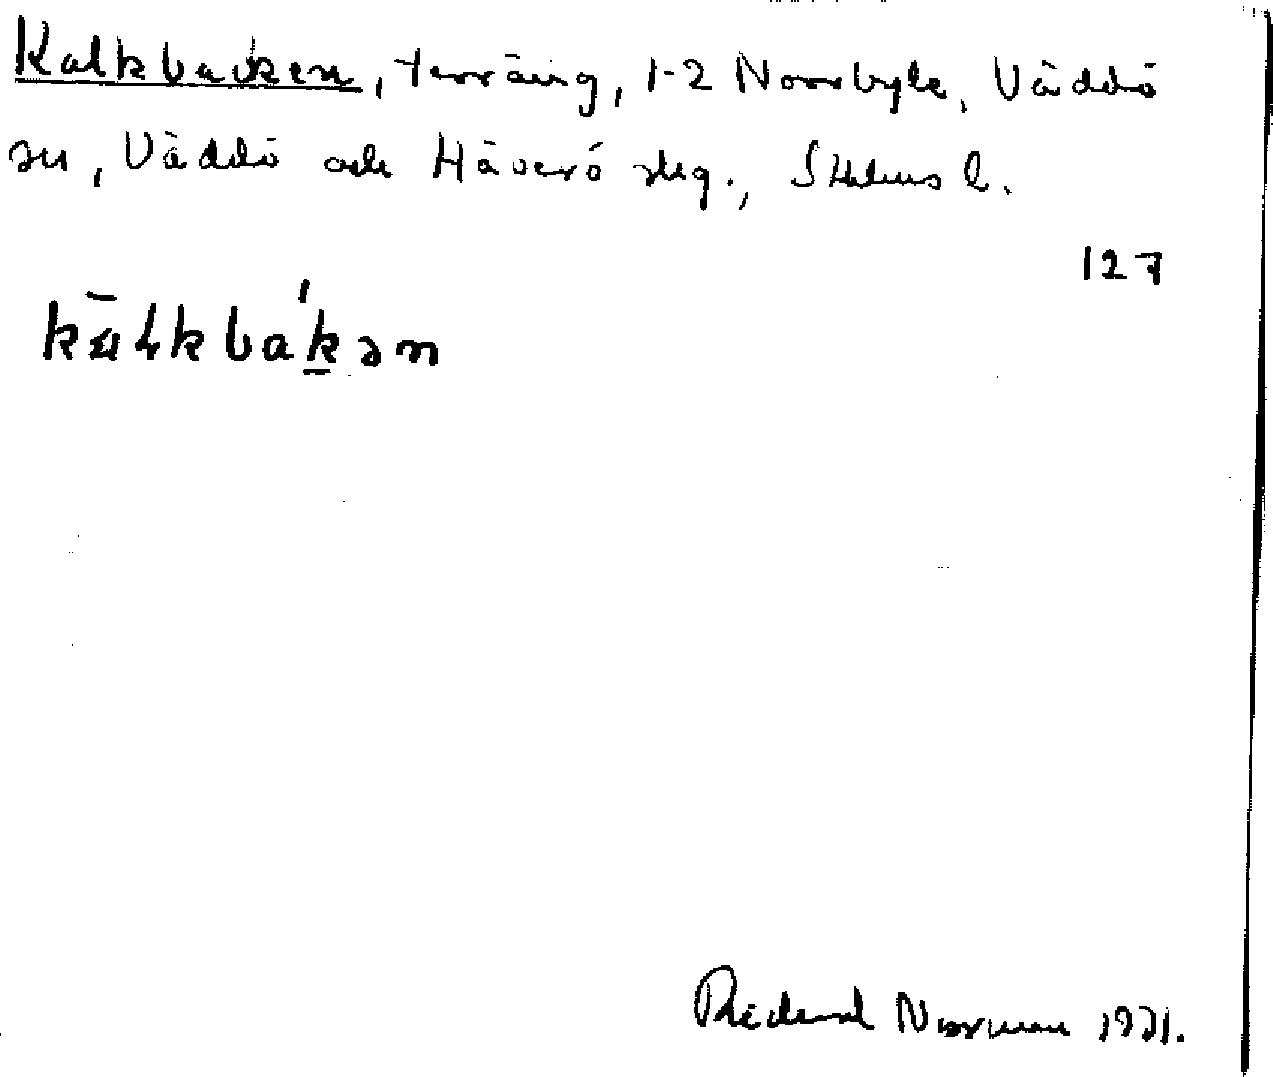 Kalkbacken, terräng, 1-2 Norrbyle, Väddö
sn, Väddö och Häverö skg., Sthlms l.
127
kalkbakən
Norman 1971.